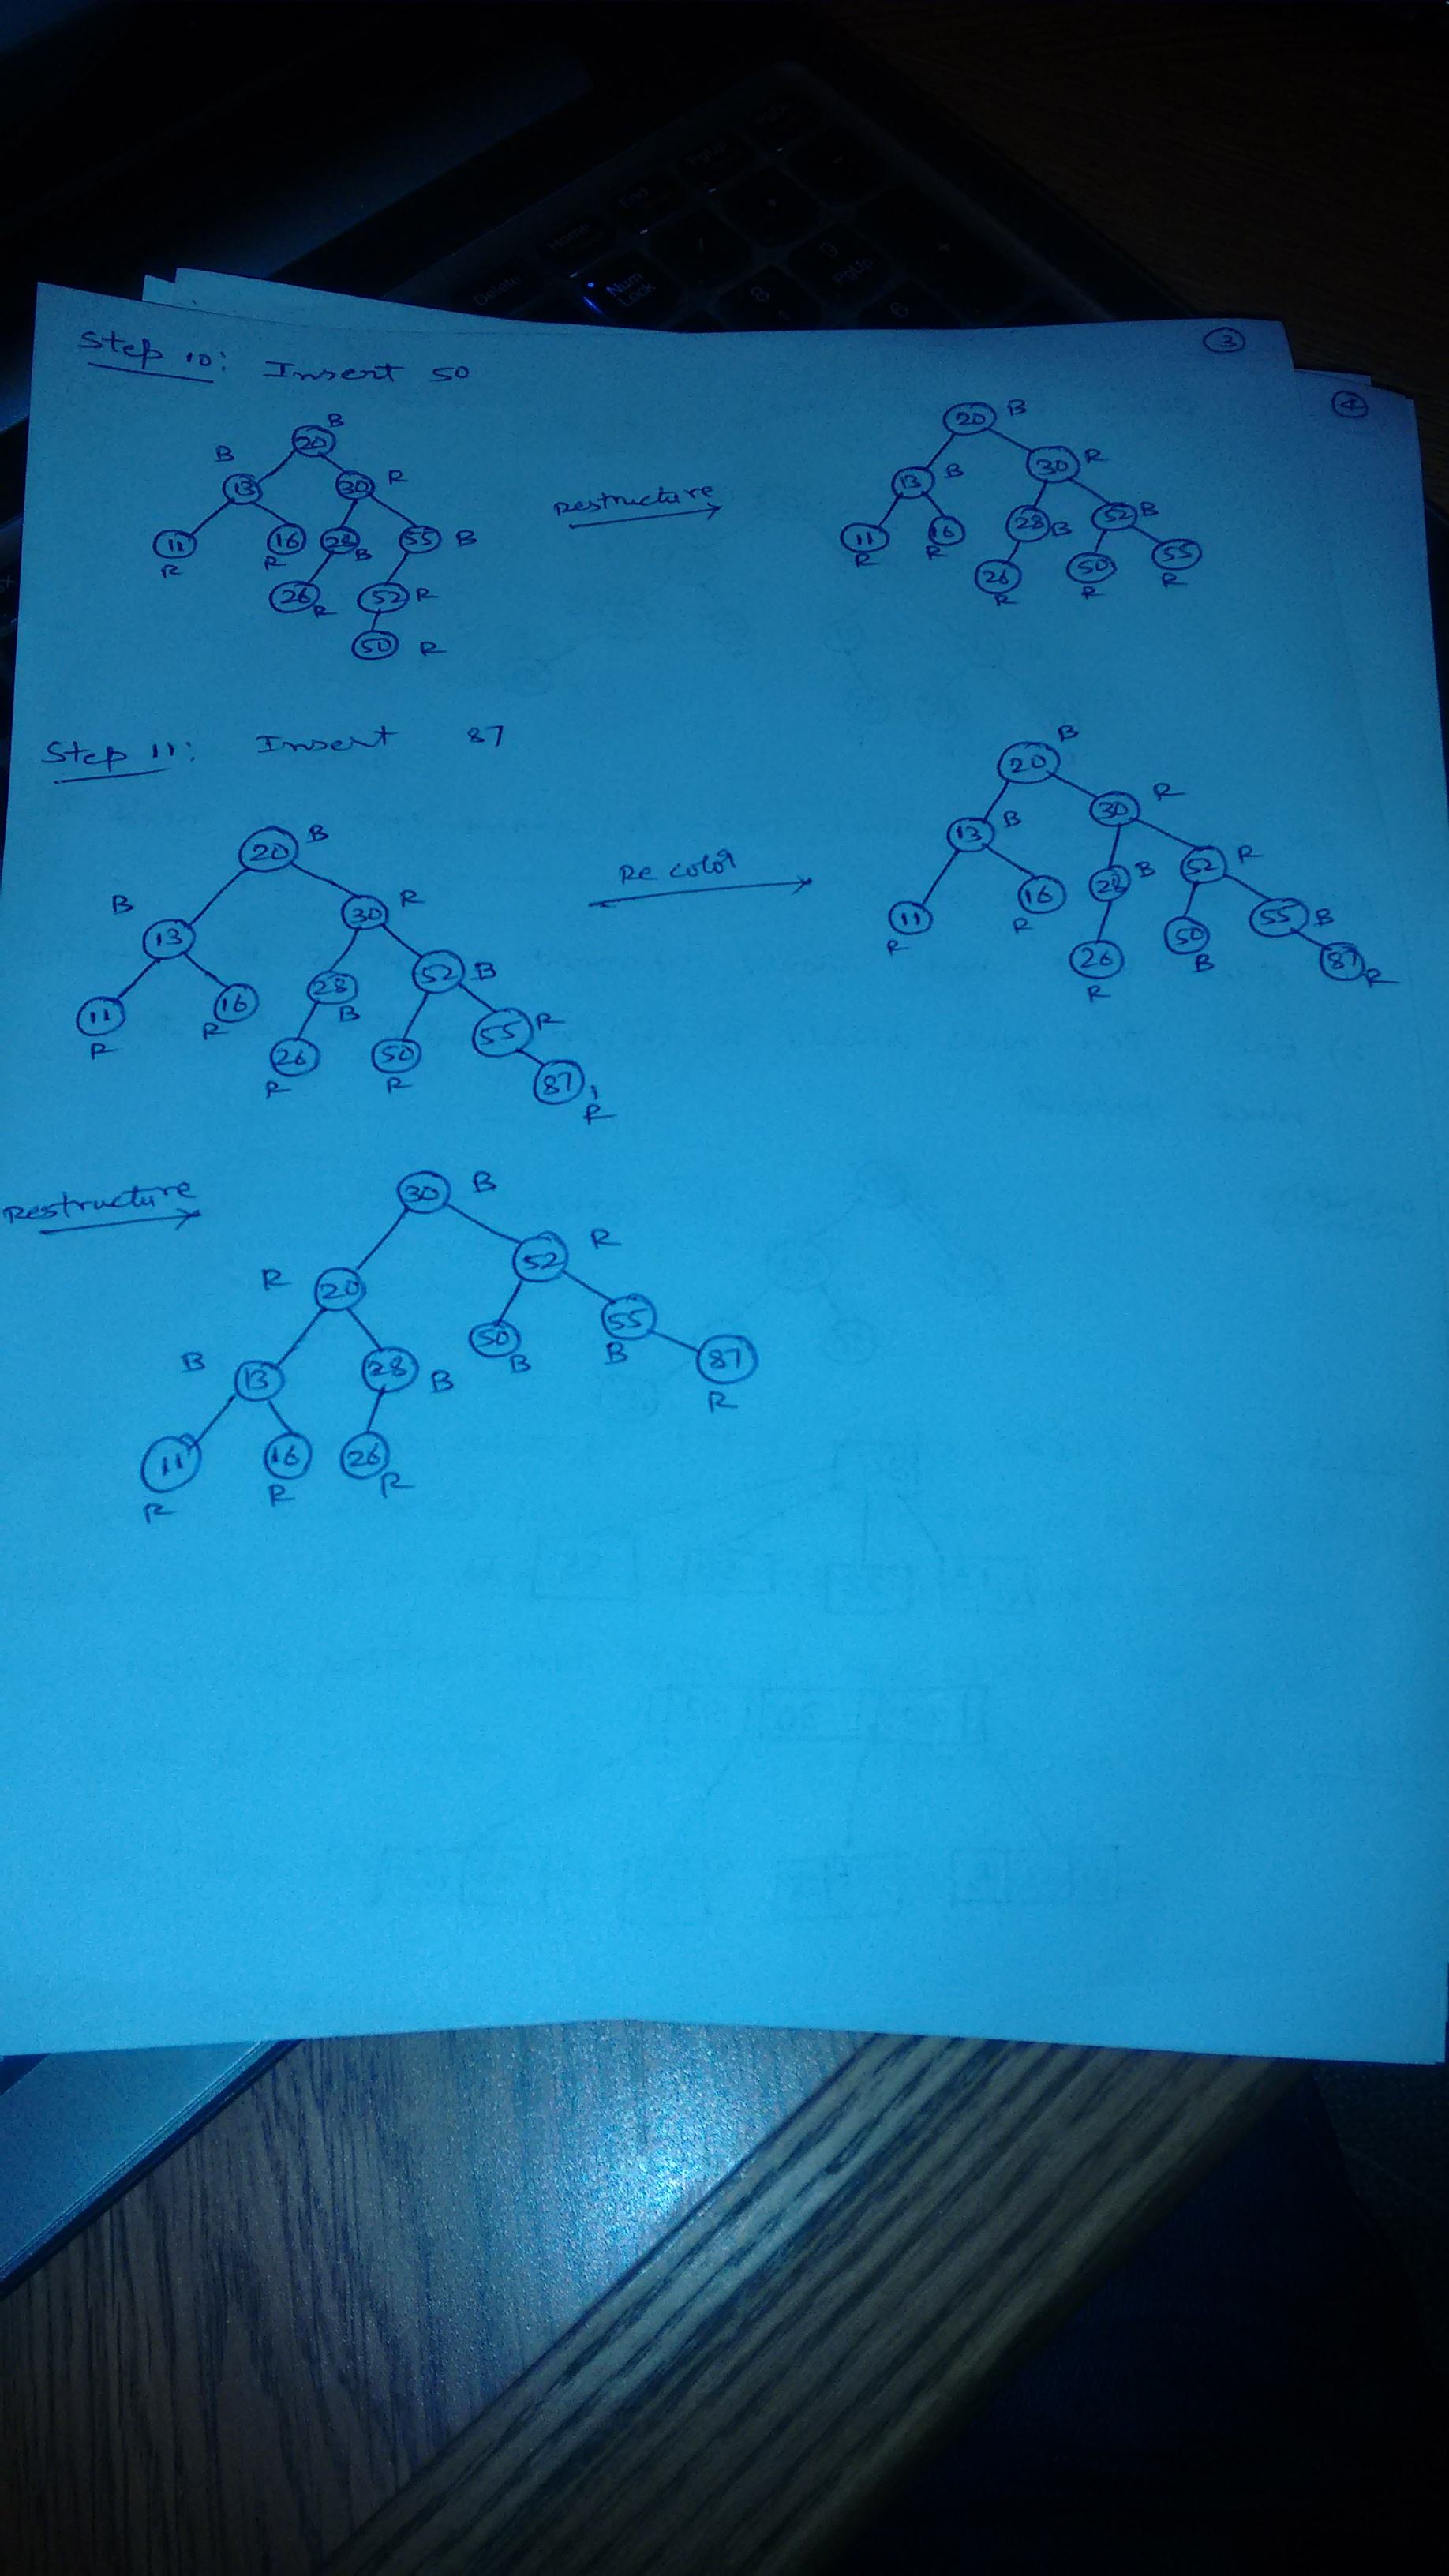 Delete
Home
End
PgUp
Num
Lock
/
*
-
8
9
PgUp
+
6
3
4
Step 10: Insert 50
B
20
B
13
30
R
11
R
16
R
28
B
55
B
26
R
52
R
50
R
Restructure
20
B
13
B
30
R
11
R
16
R
28
B
52
B
26
R
50
R
55
R
Step 11: Insert 87
20
B
B
13
30
R
11
R
16
R
28
B
52
B
26
R
50
R
55
R
87
R
Re color
B
20
13
B
30
R
11
R
16
R
28
B
52
R
26
R
50
B
55
B
87
R
Restructure
30
B
R
20
52
R
B
13
28
B
50
B
55
B
87
R
11
R
16
R
26
R